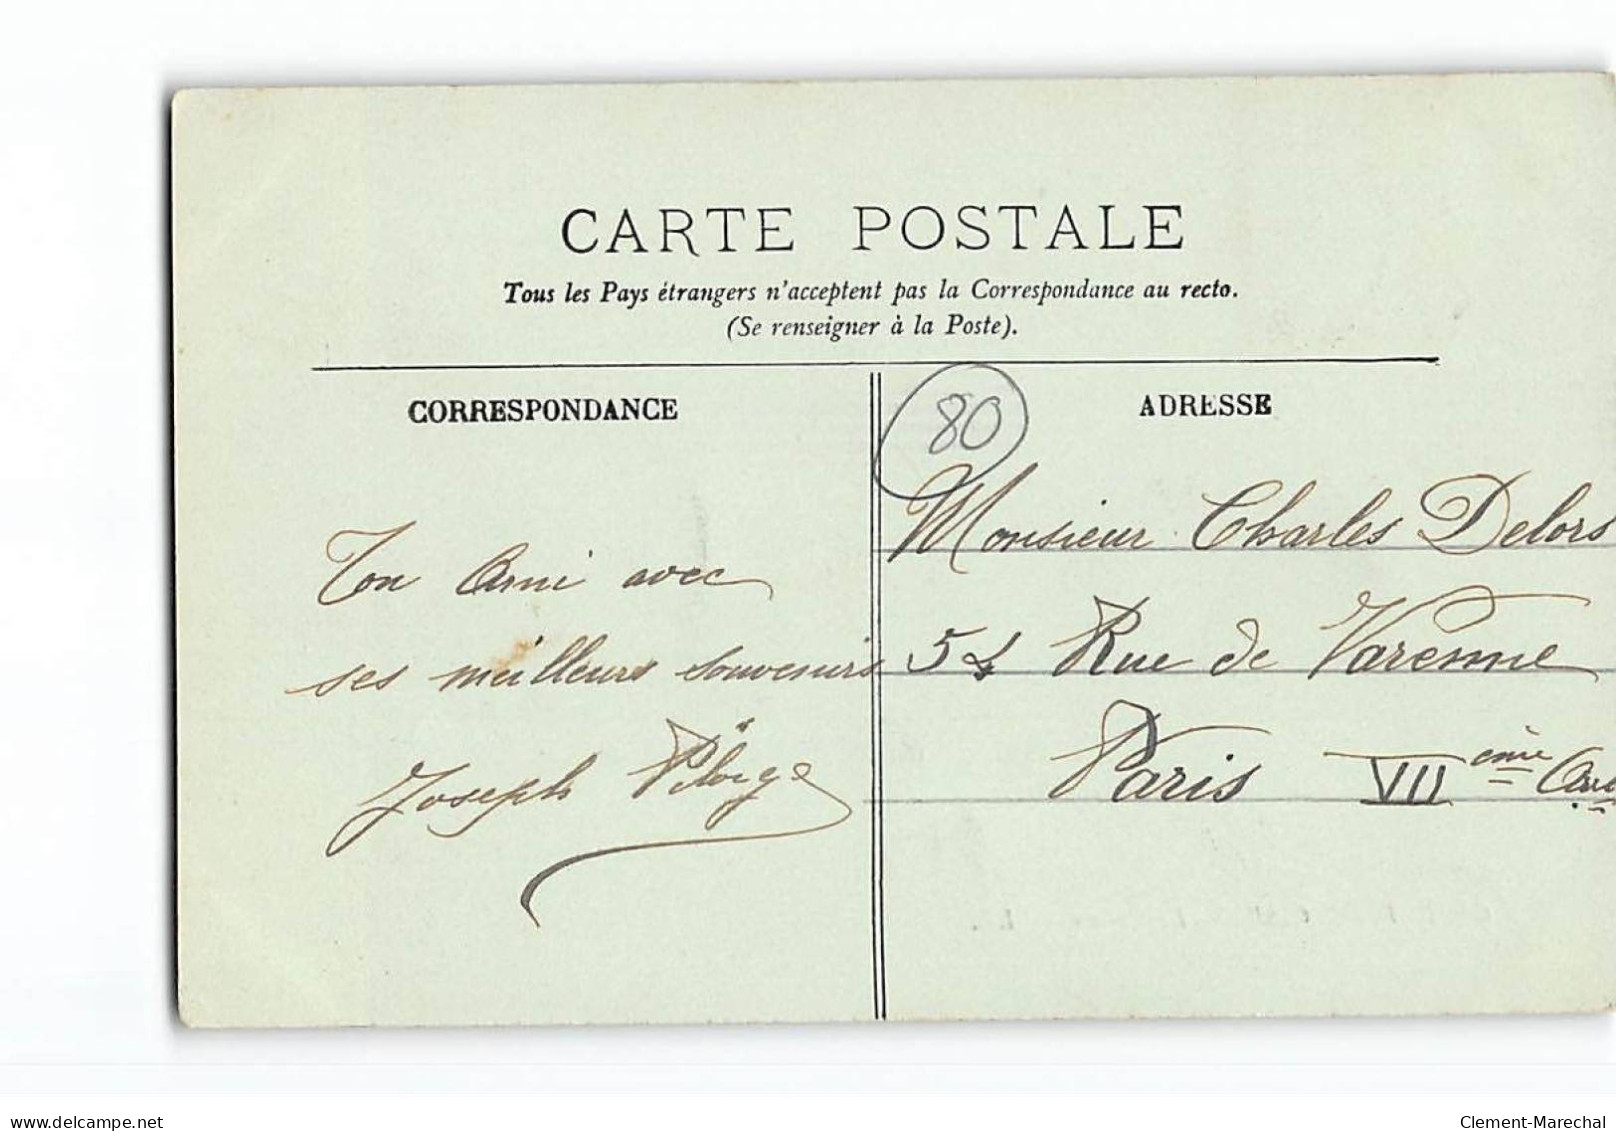 CARTE POSTALE
Tous les Pays étrangers n'acceptent pas la Correspondance au recto.
(Se renseigner à la Poste).
CORRESPONDANCE
Ton Ami avec
ses meilleurs souvenirs
Joseph
80
ADRESSE
Monsieur Charles Delors
54 Rue de Varenne
Paris VIIème
www.delcampe.net
Clement-Marechal